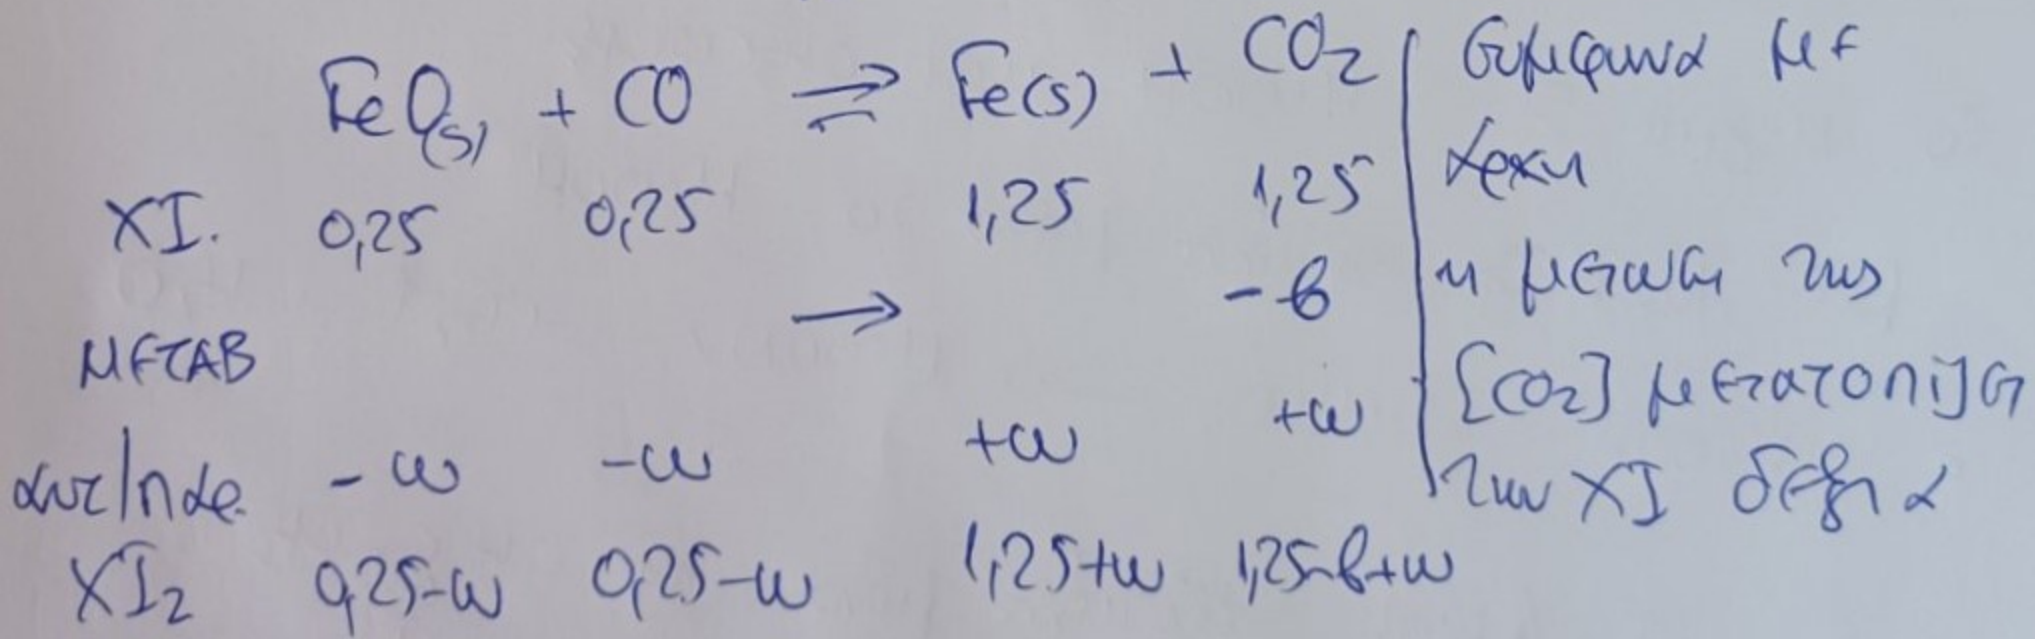 FeO(s) + CO ⇌ Fe(s) + CO2
XI. 0,25 0,25 1,25 1,25
ΜΕΤΑΒ → -β
αντ/παρ. -ω -ω +ω +ω
XI2 0,25-ω 0,25-ω 1,25+ω 1,25-β+ω
Σύμφωνα με
αρχή
η μείωση της
[CO2] μετατοπίζει
την XI δεξιά